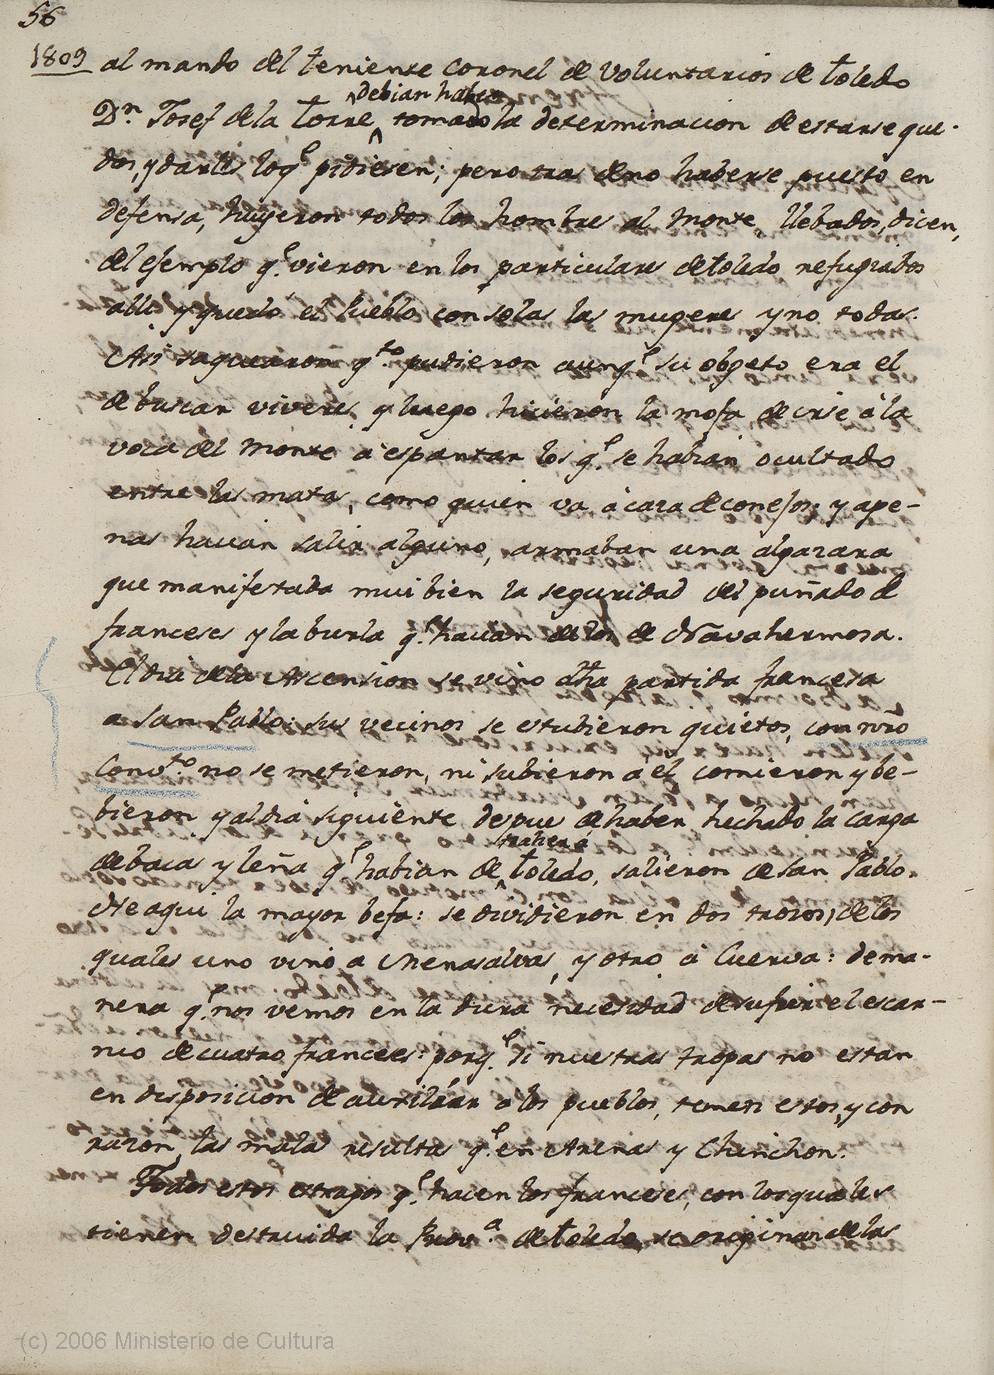 56
1809 al mando del teniente coronel de voluntarios de toledo
debian haver
Dn. Josef de la torre, tomado la determinacion de estarse que-
dos, y darles loq.e pidiesen; pero tras deno haberse puesto en
defensa, huyeron todos los hombres al monte, llebados, dicen,
del efemplo q.e vieron en los particulares de toledo refugiados
alli y quedo el Pueblo con solas las mugeres y no todas.
Asi saquearon q.to pudieron aunq.e su obgeto era el
de buscar viveres, y luego hicieron la mofa de irse á la
voca del monte á espantar los q.e se habian ocultado
entre las matas, como quien va á caza de conejos: y ape-
nas hacian salir alguno, armaban una algazara
que manifestaba mui bien la seguridad del puñado de
franceses y la burla q.e hacian de los de Navahermosa.
El dia de la Ascension se vino otra partida francesa
a San Pablo: sus vecinos se estubieron quietos, con nro
Conv.to no se metieron, ni subieron a el, comieron y be-
bieron y al dia siguiente despues de haber hechado la carga
traher a
de baca y leña q.e habian de toledo, salieron de San Pablo.
He aqui la mayor befa: se dividieron en dos trozos, de los
quales uno vino a Menasalvas, y otro á Cuerva: dema-
nera q.e nos vemos en la dura necesidad de sufrir el escar-
nio de cuatro franceses: porq.e si nuestras tropas no estan
en disposicion de auxiliar a los pueblos, temen estos, y con
razon, las malas resultas q.e en Arenas y Chinchon.
Todos estos estragos q.e hacen los franceses, con los quales
tienen destruida la Prov.a de toledo, se originan de las
(c) 2006 Ministerio de Cultura